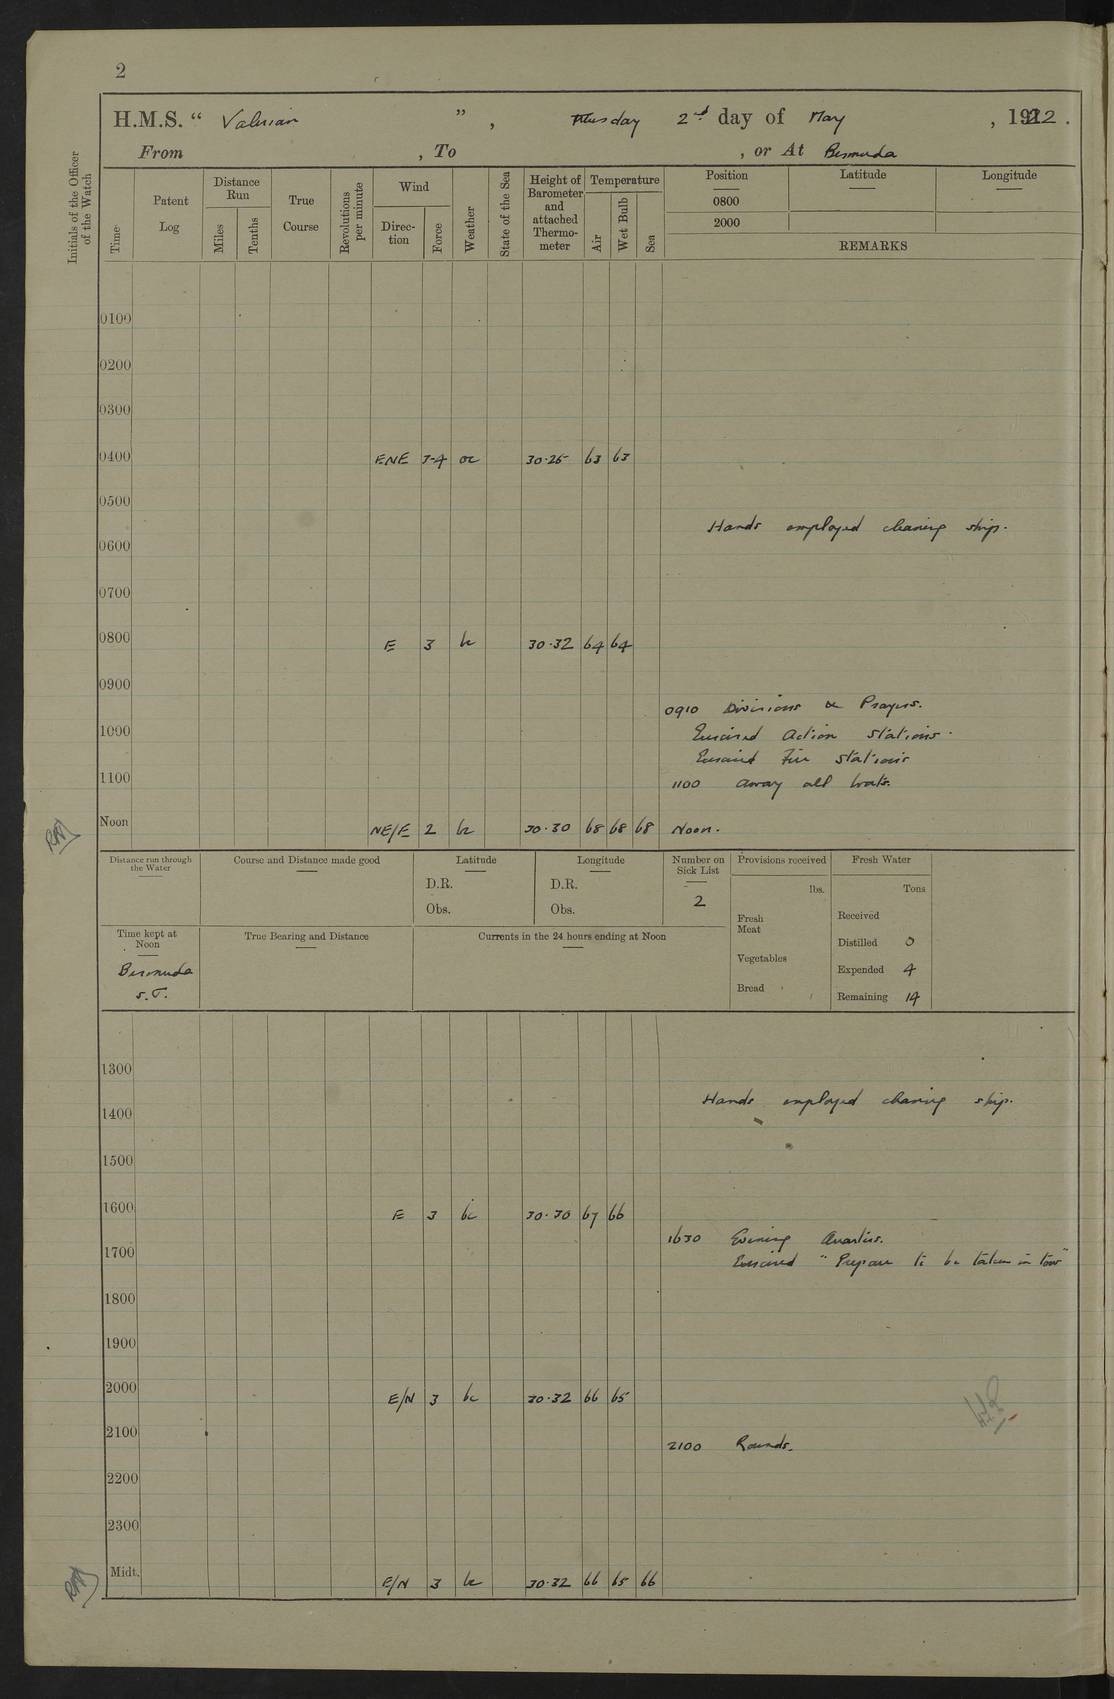 2
H.M.S. “ Valerian ”, Tuesday 2nd day of May , 1922.
From , To , or At Bermuda
Initials of the Officer of the Watch
Time
Patent Log
Distance Run
Miles
Tenths
True Course
Revolutions per minute
Wind
Direction
Force
Weather
State of the Sea
Height of Barometer and attached Thermometer
Temperature
Air
Wet Bulb
Sea
Position Latitude Longitude
0800
2000
REMARKS
0100
0200
0300
0400 ENE 3-4 oc 30·25 63 63
0500
Hands employed cleaning ship.
0600
0700
0800 E 3 bc 30·32 64 64
0900
0910 Divisions & Prayers.
1000 Exercised Action stations.
Exercised Fire stations
1100
1100 away all boats.
Noon NE/E 2 bc 30·30 68 68 68 Noon.
Distance run through the Water
Course and Distance made good
Latitude
D.R.
Obs.
Longitude
D.R.
Obs.
Number on Sick List
2
Provisions received
lbs.
Fresh Meat
Vegetables
Bread
Fresh Water
Tons
Received
Distilled 0
Expended 4
Remaining 14
Time kept at Noon
Bermuda
S.T.
True Bearing and Distance
Currents in the 24 hours ending at Noon
1300
Hands employed cleaning ship.
1400
1500
1600 E 3 bc 30·30 67 66
1630 Evening Quarters.
1700 Exercised "Prepare to be taken in tow"
1800
1900
2000 E/N 3 bc 30·32 66 65
2100
2100 Rounds.
2200
2300
Midt. E/N 3 bc 30·32 66 65 66